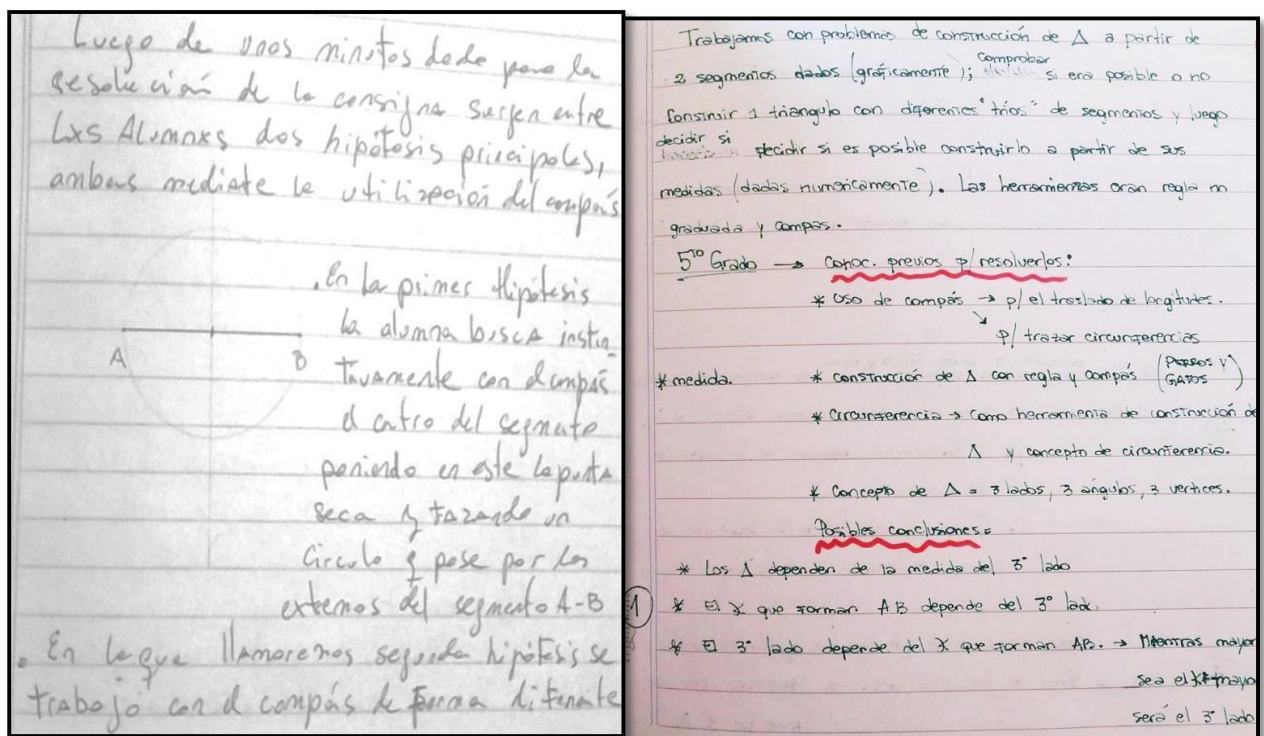 Luego de unos minutos dado para la
resolución de la consigna surgen entre
Lxs Alumnxs dos hipótesis principales,
ambas mediate la utilización del compás
A
B
.En la primer Hipótesis
la alumna busca instin_
tivamente con el compás
el centro del segmento
poniendo en este la punta
seca y trazando un
Circulo q pase por los
extremos del segmento A-B
. En lo que llamaremos segunda hipótesis se
trabajó con el compás de forma diferente
Trabajamos con problemas de construcción de Δ a partir de
2 segmentos dados (gráficamente); comprobar si era posible o no
construir 1 triangulo con diferentes "tríos" de segmentos y luego
decidir si decidir si es posible construirlo a partir de sus
medidas (dadas numéricamente). Las herramientas eran regla no
graduada y compás.
5to Grado → Conoc. previos p/ resolverlos:
* Uso de compás → p/ el traslado de longitudes.
↘ p/ trazar circunferencias
* medida.
* construcción de Δ con regla y compás (PERROS Y GATOS)
* circunferencia → como herramienta de construcción de
Δ y concepto de circunferencia.
* Concepto de Δ = 3 lados, 3 ángulos, 3 vertices.
Posibles conclusiones=
* Los Δ dependen de la medida del 3° lado
1
* El ∢ que forman AB depende del 3° lado.
* El 3° lado depende del ∢ que forman AB. → Mientras mayor
sea el ∢ mayo
será el 3° lado